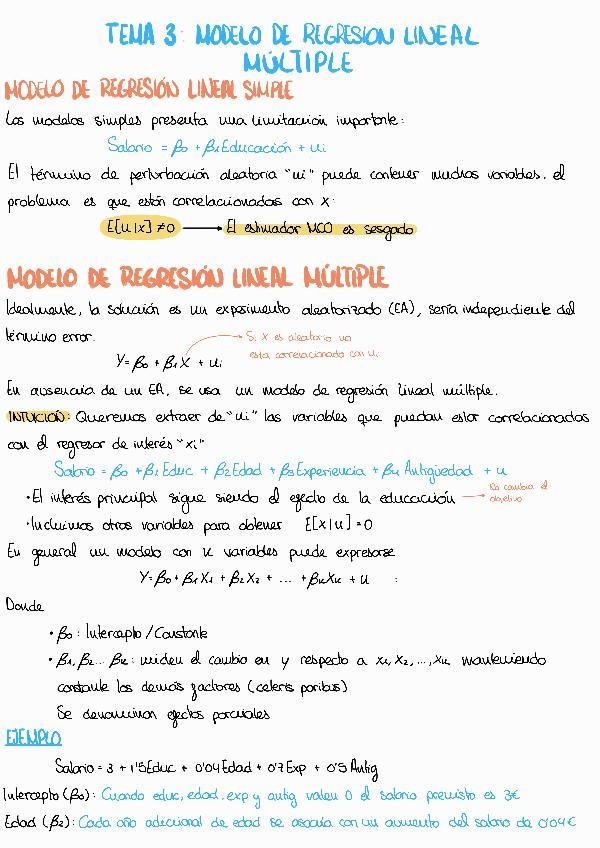 TEMA 3: MODELO DE REGRESION LINEAL
MÚLTIPLE
MODELO DE REGRESIÓN LINEAL SIMPLE
Los modelos simples presenta una limitación importante:
Salario = β0 + β1 Educación + ui
El término de perturbación aleatoria "ui" puede contener muchas variables. el
problema es que están correlacionadas con x:
E[u|x] ≠ 0 → El estimador MCO es sesgado
MODELO DE REGRESIÓN LINEAL MÚLTIPLE
Idealmente, la solución es un experimento aleatorizado (EA), sería independiente del
término error.
Si X es aleatorio no
esta correlacionado con ui
Y = β0 + β1 X + ui
En ausencia de un EA, se usa un modelo de regresión lineal múltiple.
INTUICION: Queremos extraer de "ui" las variables que puedan estar correlacionadas
con el regresor de interés "xi"
Salario = β0 + β1 Educ + β2 Edad + β3 Experiencia + β4 Antigüedad + u
• El interés principal sigue siendo el efecto de la educación → No cambia el
objetivo
• Incluimos otras variables para obtener E[x|u] = 0
En general un modelo con k variables puede expresarse
Y = β0 + β1 X1 + β2 X2 + ... + βk Xk + u :
Donde
• β0: Intercepto / Constante
• β1, β2... βk: miden el cambio en y respecto a x1, x2, ..., xk manteniendo
constante los demás factores (ceteris paribus)
Se denominan efectos parciales
EJEMPLO
Salario = 3 + 1'5 Educ + 0'04 Edad + 0'7 Exp + 0'5 Antig
Intercepto (β0): Cuando educ, edad, exp y antig valen 0 el salario previsto es 3€
Edad (β2): Cada año adicional de edad se asocia con un aumento del salario de 0'04€